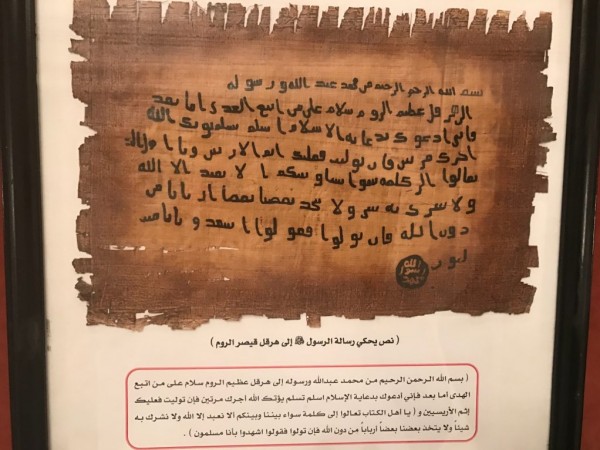 بسم الله الرحمن الرحيم من محمد عبد الله و رسوله
الى هرقل عظيم الروم سلام على من اتبع الهدى اما بعد
فانى ادعوك بدعاية الاسلام اسلم تسلم يوتك الله
اجرك مرتين فان توليت فعليك اثم الاريسين ويا اهل
تعالوا الى كلمة سوا بيننا وبينكم الا نعبد الا الله
ولا نشرك به ولا يتخذ بعضنا بعضا اربابا من
دون الله فان تولوا فقولوا اشهدوا بانا مس
لمون
الله
رسول
محمد
( نص يحكي رسالة الرسول ﷺ إلى هرقل قيصر الروم )
( بسم الله الرحمن الرحيم من محمد عبدالله ورسوله إلى هرقل عظيم الروم سلام على من اتبع
الهدى أما بعد فإني أدعوك بدعاية الإسلام اسلم تسلم يؤتك الله أجرك مرتين فإن توليت فعليك
إثم الأريسيين و ( يا أهل الكتاب تعالوا إلى كلمة سواء بيننا وبينكم ألا نعبد إلا الله ولا نشرك به
شيئاً ولا يتخذ بعضنا بعضاً أرباباً من دون الله فإن تولوا فقولوا اشهدوا بأنا مسلمون ) .